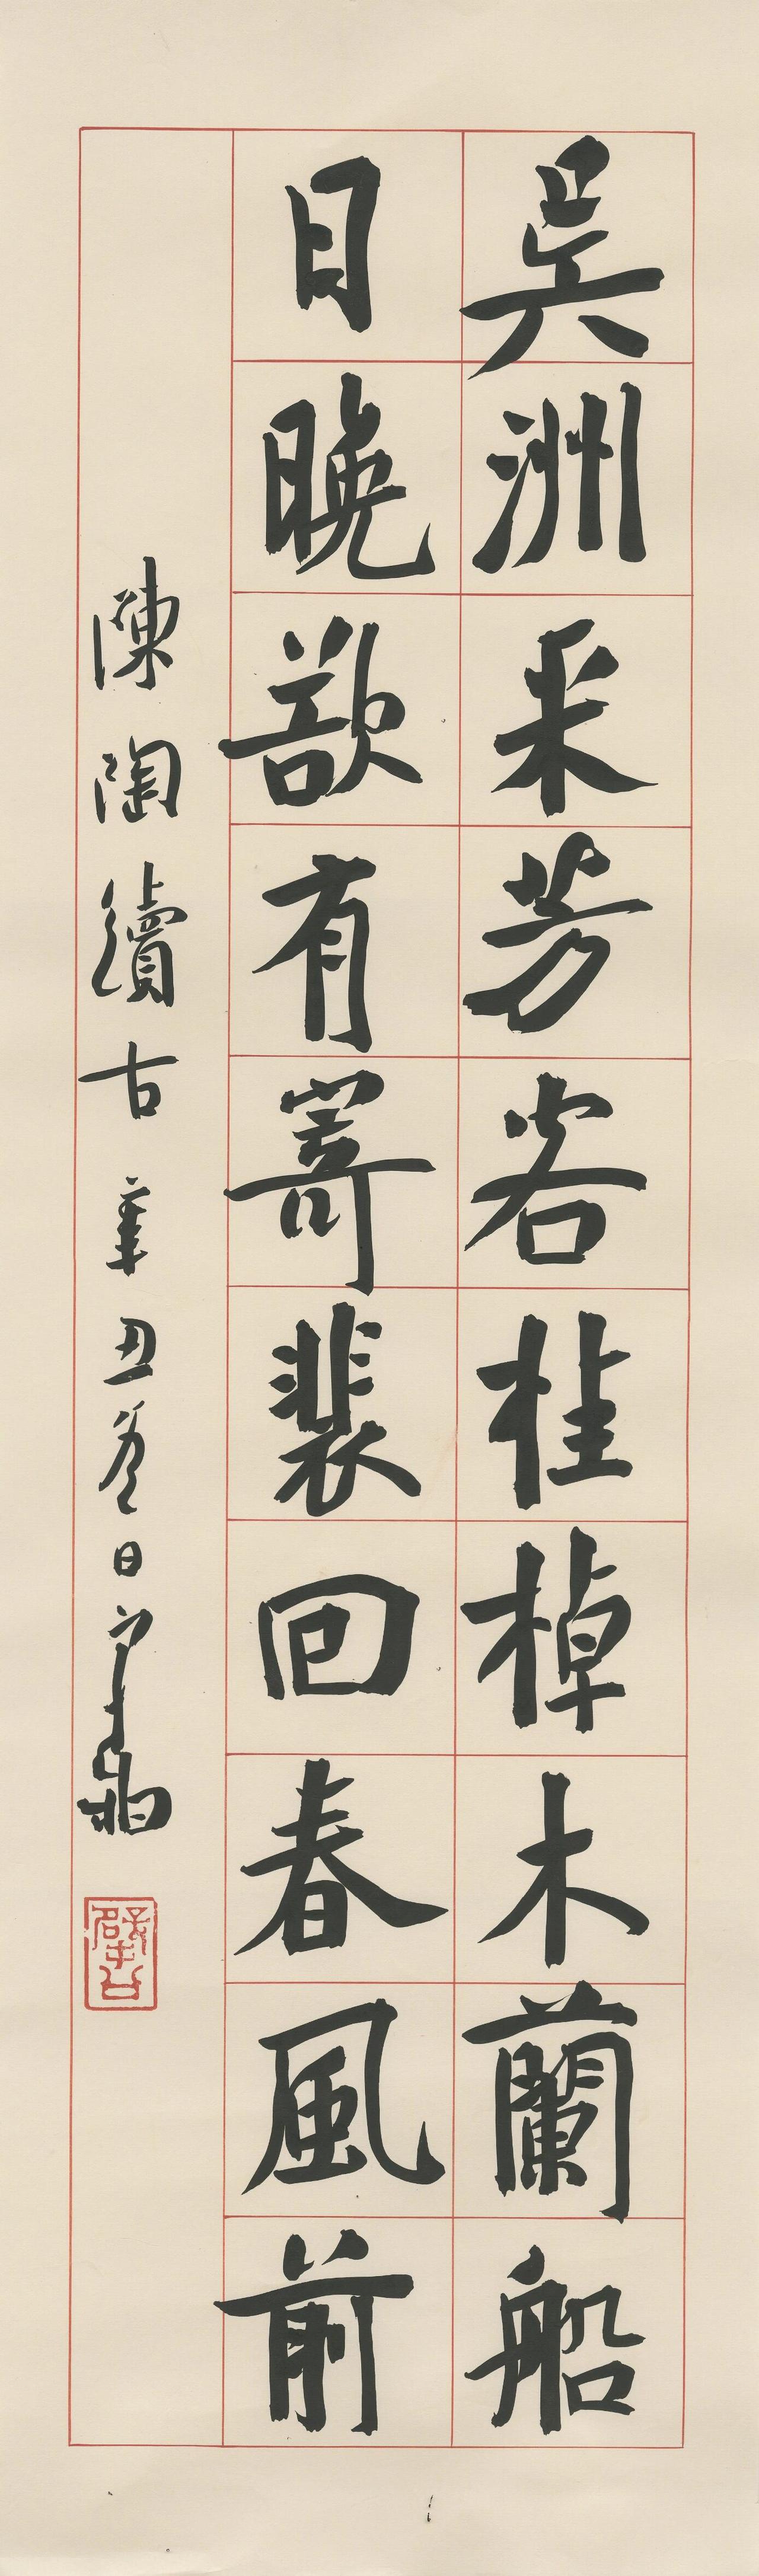 吳洲采芳客桂棹木蘭船
日晚欲有寄裴回春風前
陳陶續古 辛丑冬日